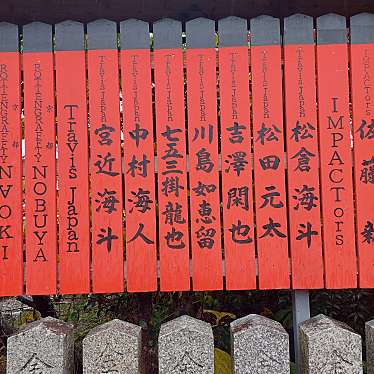 京都 ROTTENGRAFFTY NAOKI
京都 ROTTENGRAFFTY NOBUYA
Travis Japan
Travis Japan 宮近海斗
Travis Japan 中村海人
Travis Japan 七五三掛龍也
Travis Japan 川島如恵留
Travis Japan 吉澤閑也
Travis Japan 松田元太
Travis Japan 松倉海斗
IMPACTors
IMPACTors 佐藤新
全
全
全
全
全